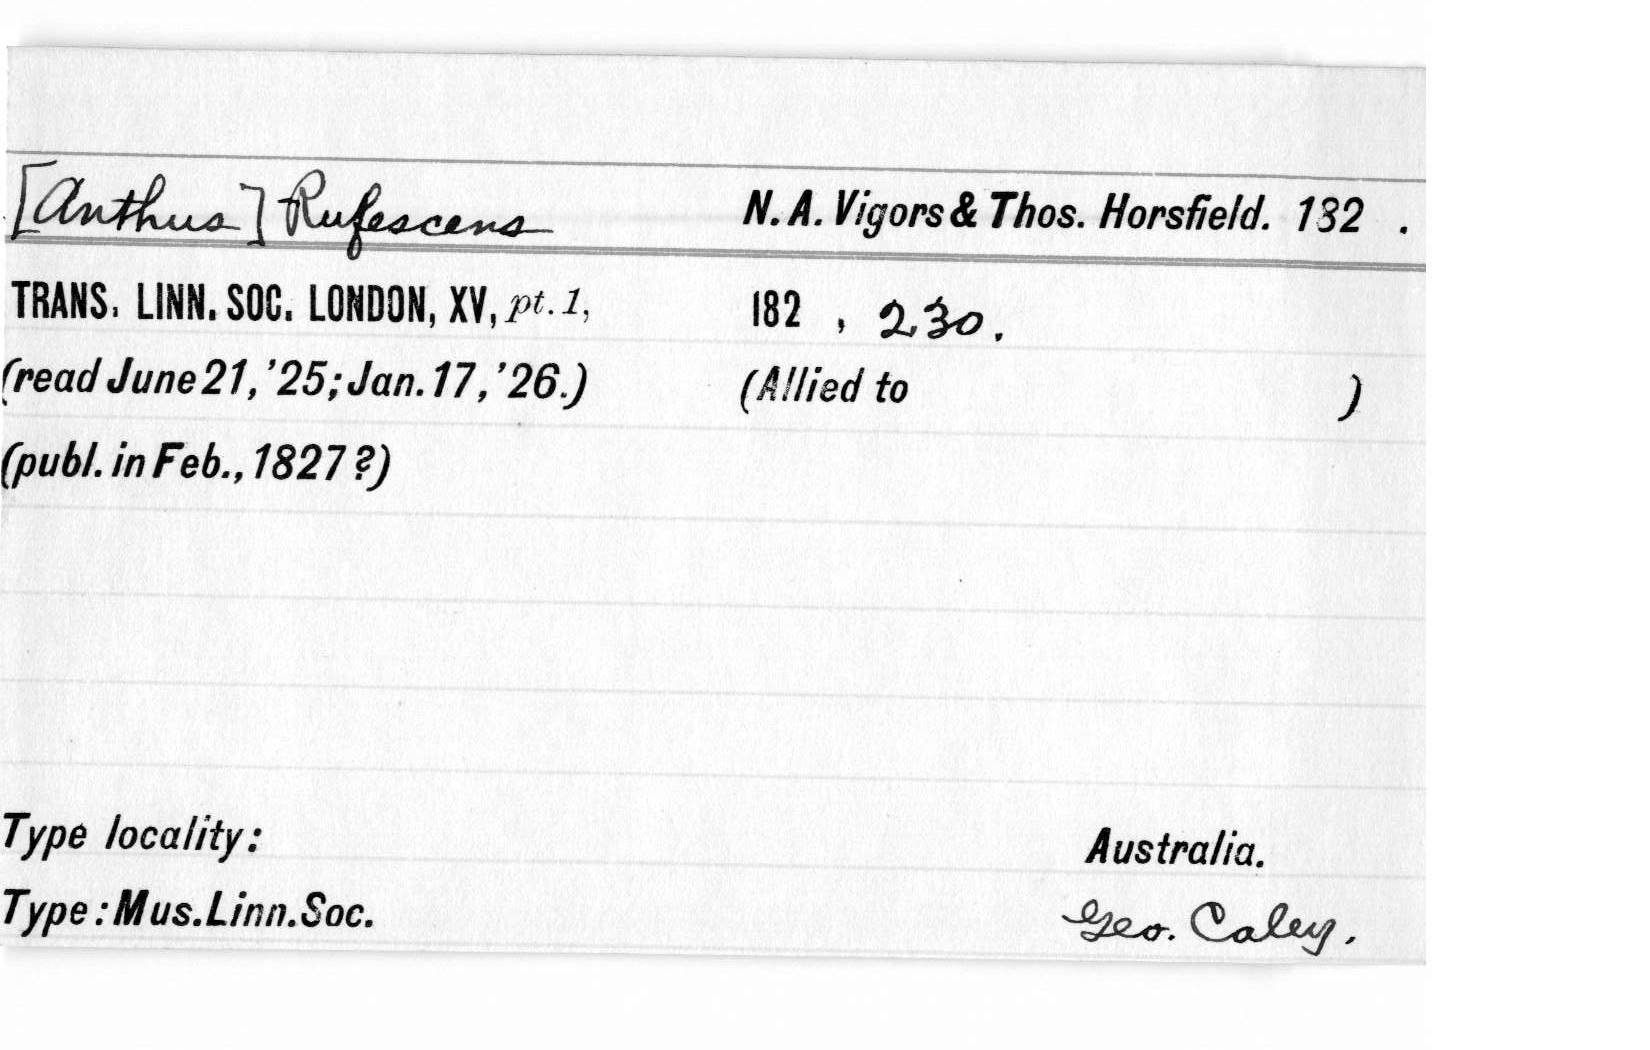 [Anthus] Rufescens N. A. Vigors & Thos. Horsfield. 182 .
TRANS. LINN. SOC. LONDON, XV, pt. 1, 182 , 230.
(read June 21, '25; Jan. 17, '26.) (Allied to )
(publ. in Feb., 1827 ?)
Type locality: Australia.
Type: Mus. Linn. Soc. Geo. Caley.